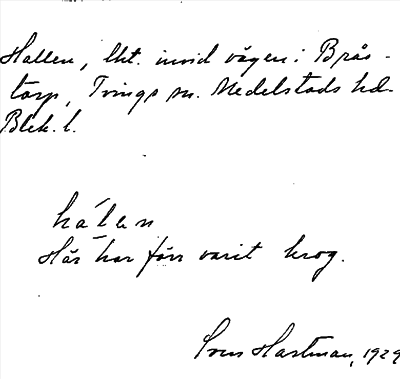 Hallen, lht. invid vägen i Brås-
torp, Tvings sn. Medelstads hd.
Blek. l.
hálen
Här har förr varit krog.
Sven Hartman, 1929